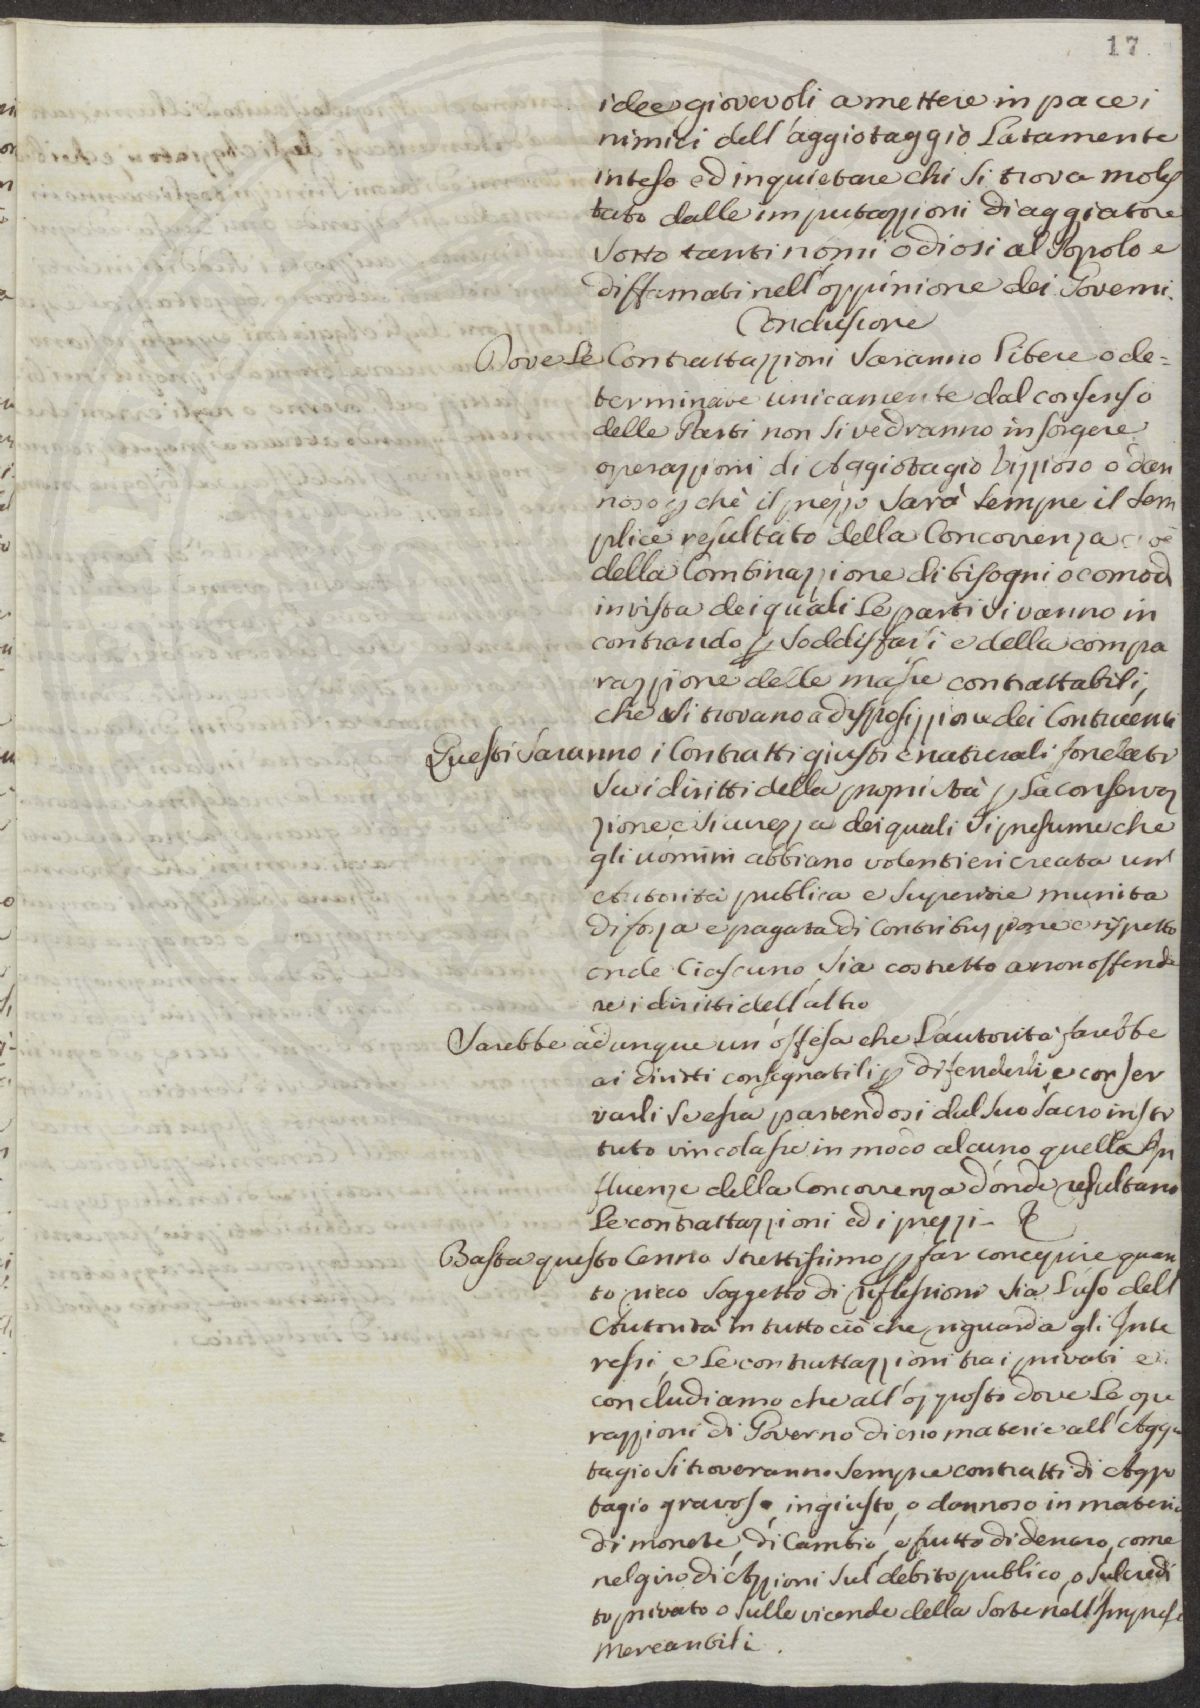 17
idee giovevoli a mettere in pace i
nimici dell'aggiotaggio Latamente
inteso ed inquietare chi si trova moles
tato dalle imputazzioni di aggiatore
sotto tanti nomi odiosi al Popolo e
diffamati nell'oppinione dei Governi.
Conclusione
Dove le Contrattazzioni saranno libere o de=
terminate unicamente dal consenso
delle Parti non si vedranno insorgere
operazzioni di Aggiotagio vizzioso o dan
noso p chè il prezzo sarà sempre il sem
plice resultato della Concorrenza cioè
della Combinazzione di bisogni o comodi
in vista dei quali le parti si vanno in
contrando p soddisfarsi e della compa
razzione delle masse contrattabili,
che si trovano a disposizzione dei Contraenti
Questi saranno i Contratti giusti e naturali fondati
su i diritti della proprietà p la conserva
zione e sicurezza dei quali si presume che
gli uomini abbiano volentieri creata un'
Autorità publica e superiore munita
di forza e pagata di Contribuzzione e rispetto
onde Ciascuno sia costretto a non offende
re i diritti dell'altro
Sarebbe adunque un'offesa che l'autorità farebbe
ai diritti consegnatili p difenderli e conser
varli se essa partendosi dal suo sacro insti
tuto vincolasse in modo alcuno quella In
fluenze della Concorrenza d'onde resultano
le contrattazzioni ed i prezzi -
Basta questo Cenno strettissimo p far concepire quan
to ricco soggetto di riflessioni sia l'uso dell'
Autorità in tutto ciò che riguarda gli Inte
ressi, e le contrattazzioni tra i privati e
concludiamo che all'opposto dove le ope
razzioni di Governo dieno materie all'Aggio
tagio si troveranno sempre contratti di Aggio
tagio gravoso, ingiusto, o dannoso in materia
di monete, di Cambio, e frutto di denaro, come
nel giro di Azzioni sul debito publico, o sul credi
to privato o sulle vicende della sorte nell'Imprese
Mercantili.